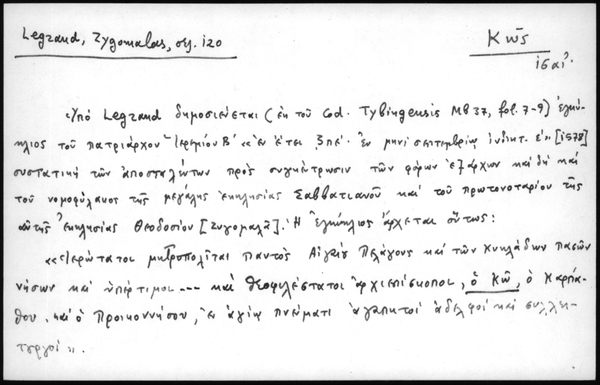 Legrand, Zygomalas, σελ. 120
Κῶς
ις αἰ.
«Υπό Legrand δημοσιεύεται (ἐκ τοῦ Cod. Tybingensis MB 37, fol. 7-9) ἐγκύ-
κλιος τοῦ πατριάρχου Ἱερεμίου Β' «ἐν ἔτει ζπζ' ἐν μηνί σεπτεμβρίῳ ἰνδικτ. » [1578]
συστατική τῶν ἀποσταλέντων πρός συγκέντρωσιν τῶν φόρων ἐξάρχων καί δή καί
τοῦ νομοφύλακος τῆς μεγάλης ἐκκλησίας Σαββατιανοῦ καί τοῦ πρωτονοταρίου τῆς
αὐτῆς ἐκκλησίας Θεοδοσίου [Ζυγομαλᾶ]. Ἡ ἐγκύκλιος ἄρχεται οὕτως:
««Ἱερώτατοι μητροπολῖται παντός Αἰγαίου Πελάγους καί τῶν Κυκλάδων πασῶν
νήσων καί ὑπέρτιμοι --- καί θεοφιλέστατοι ἀρχιεπίσκοποι, ὁ Κῶ, ὁ Καρπά-
θου καί ὁ Προικοννήσου, ἐν ἁγίῳ πνεύματι ἀγαπητοί ἀδελφοί καί συλλει-
τουργοί».